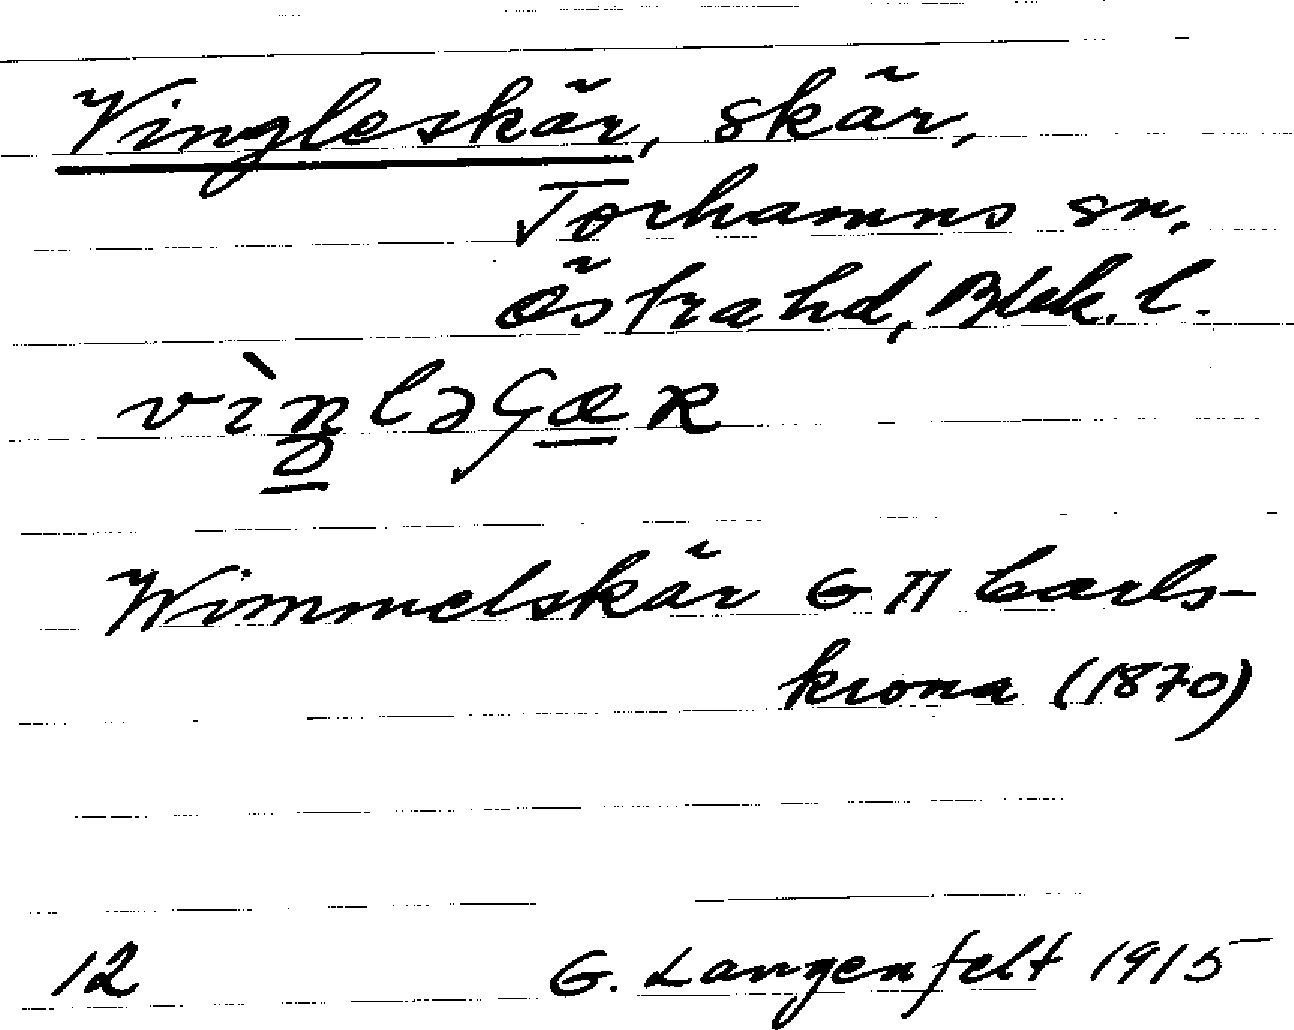 Vingleskär, skär,
Torhamns sn,
Östra hd, Blek. l.
Wimmelskär GK Carls-
krona (1870)
12 G. Langenfelt 1915